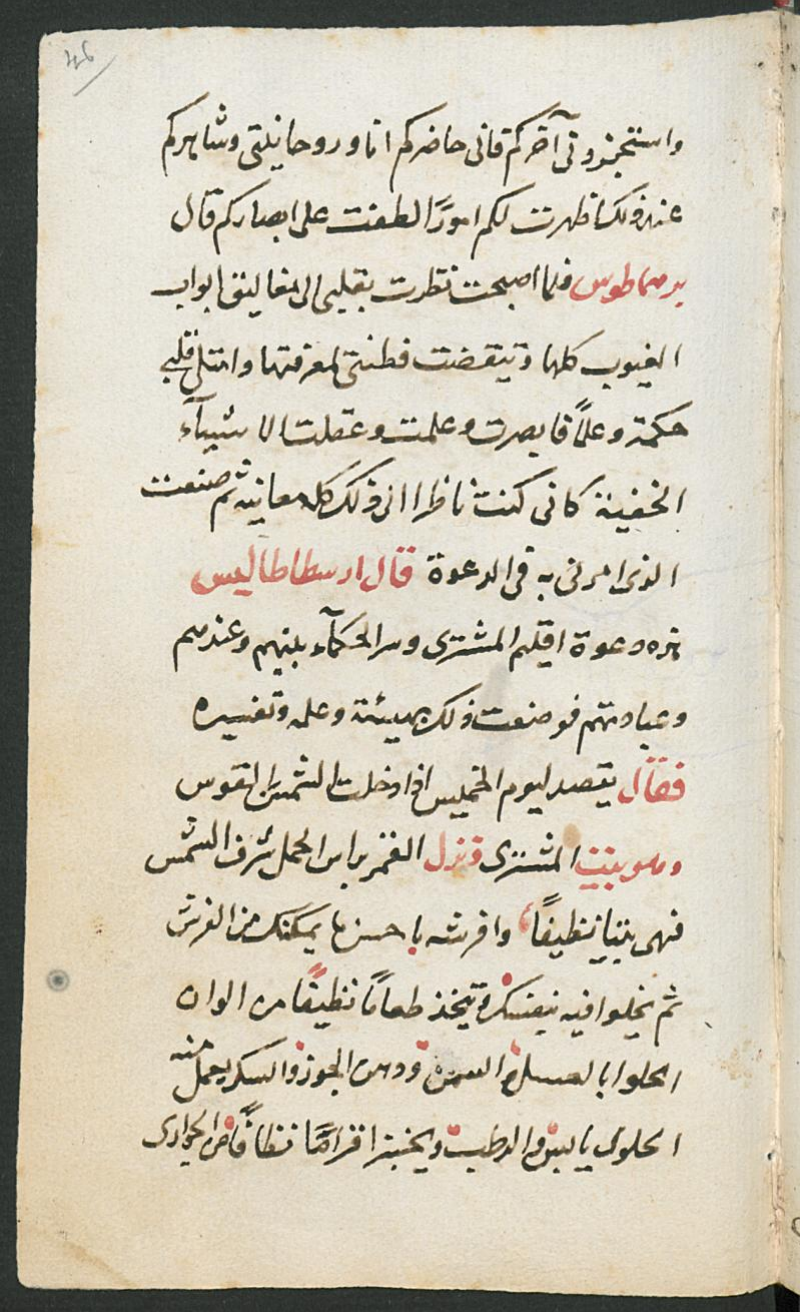 46
واستنجزونى آخركم فانى حاضركم انا وروحانيتى وشاهركم
عند ذلك فظهرت لكم امورًا لطفت على ابصاركم قال
برهماطوس فلما اصبحت نظرت بقلبى الى مغاليق ابواب
الغيوب كلها وتيقضت فطنتى لمعرفتها وامتلى قلبى
حكمة وعلمًا فابصرت وعلمت وعقلت الاشيآء
الخفية كانى كنت ناظرا الى ذلك كله معاينة ثم صنعت
الذى امرنى به فى الدعوة قال ارسطاطاليس
هذه دعوة اقليم المشترى وسر الحكمآء بينهم وعندهم
وعبادتهم فوضعت ذلك بهيئة وعلمه وتفسيره
فقال يقصد ليوم الخميس اذا دخلت الشمس القوس
وهو بيت المشترى ونزل القمر براس الحمل شرف الشمس
فهى بيتا نظيفًا وافرشه باحسن ما يمكنك من الفرش
ثم يخلوا فيه بنفسك وتتخذ طعامًا نظيفًا من الوان
الحلوا بالعسل والسمن ودهن الجوز والسكر يعمل منه
الحلوى يابس والرطب ويخبز اقراصًا نظافًا من الحوارى